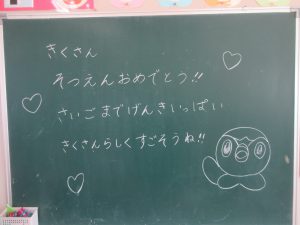 きくさん
そつえんおめでとう!!
さいごまでげんきいっぱい
きくさんらしくすごそうね!!